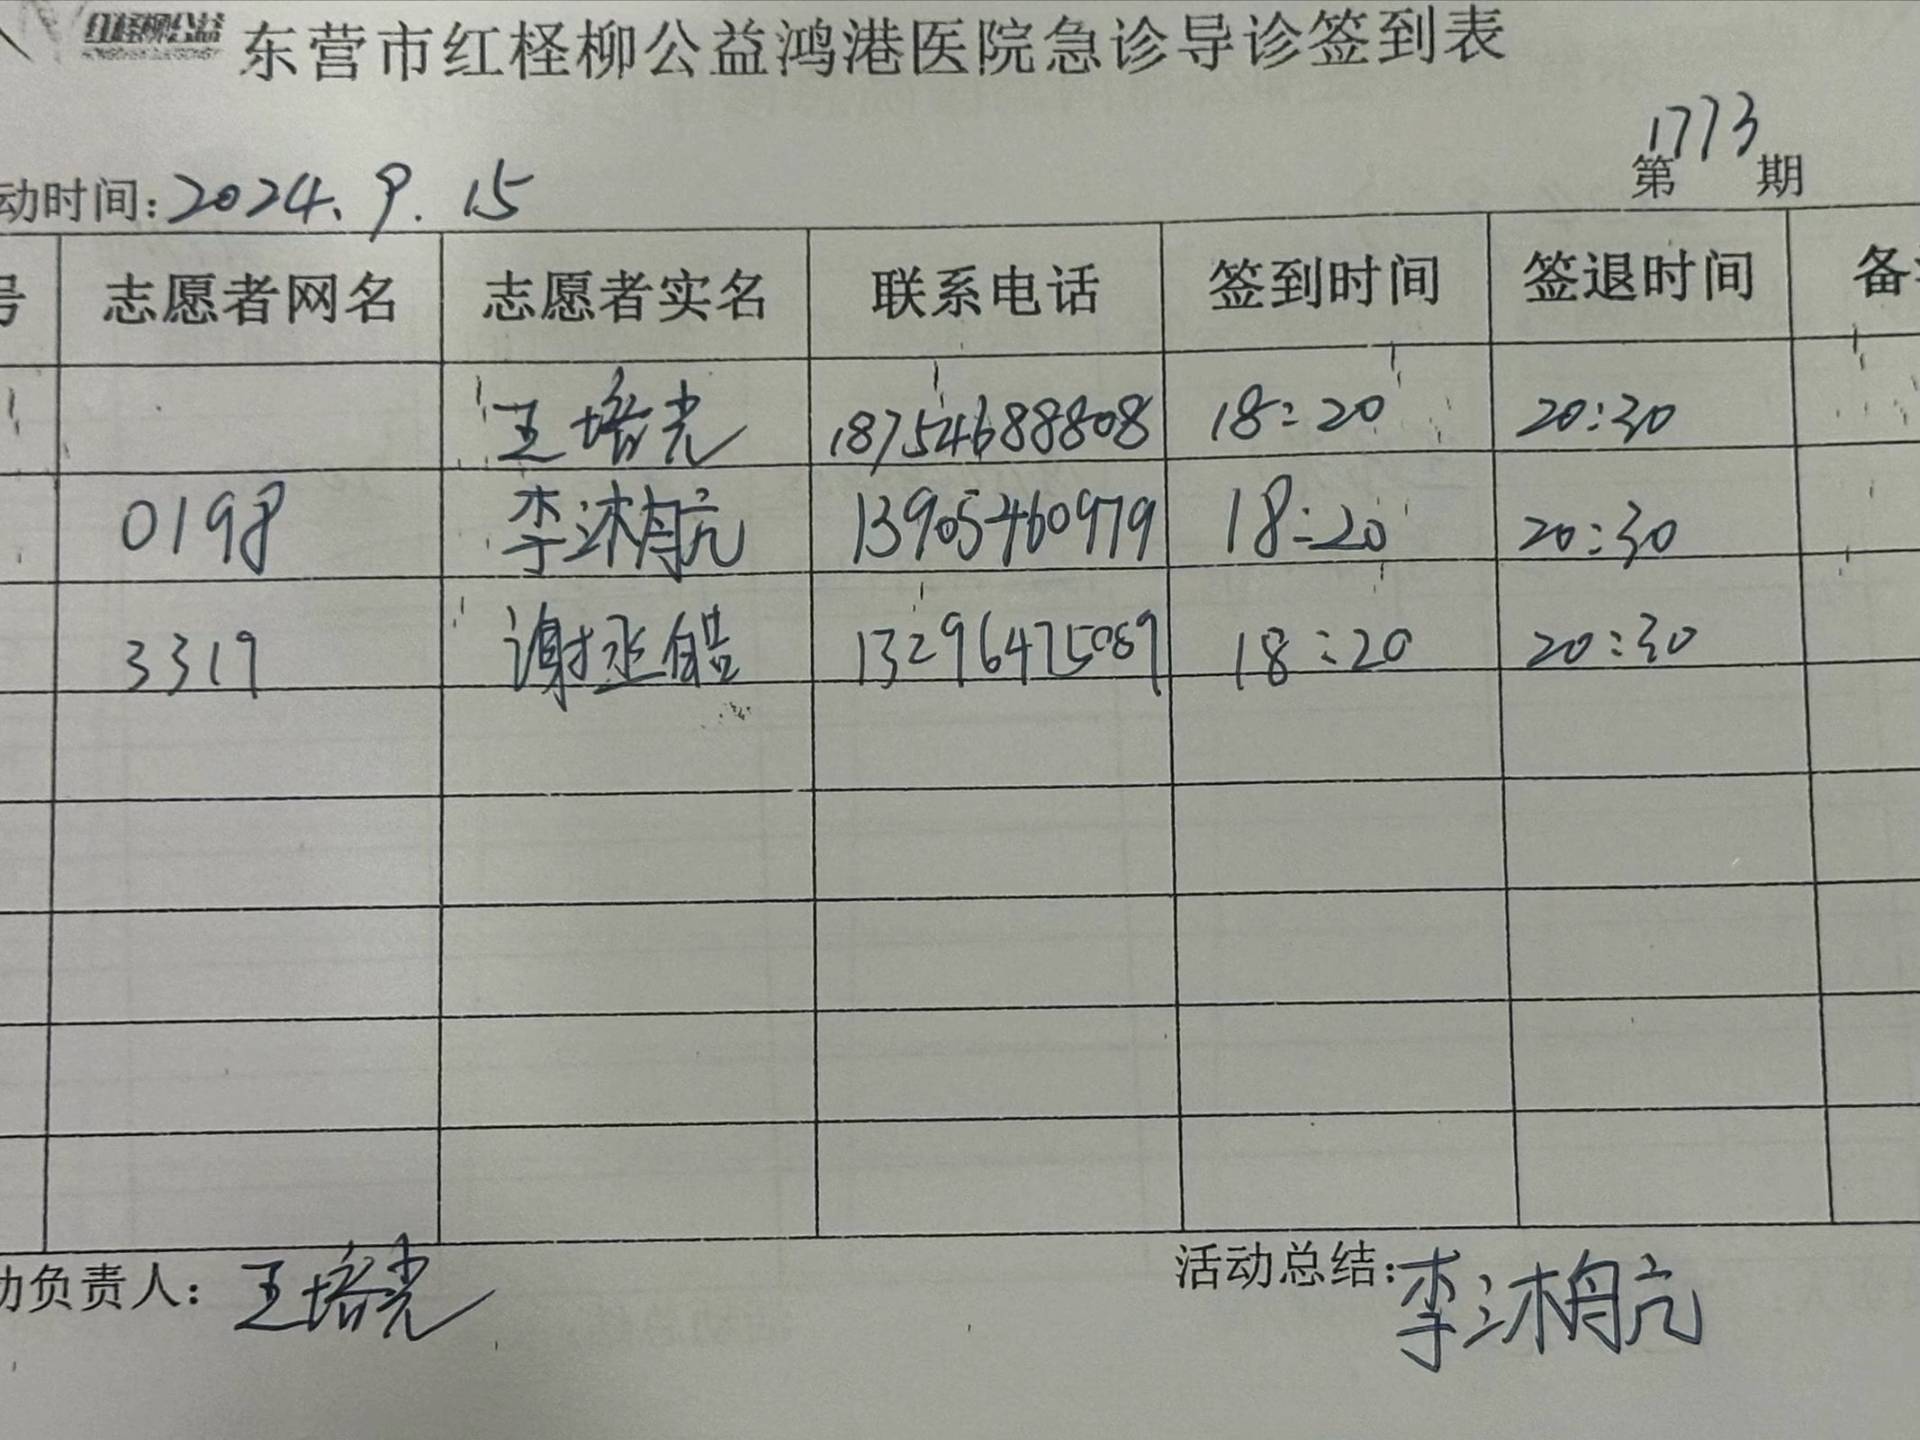 红柽柳公益
东营市红柽柳公益鸿港医院急诊导诊签到表
第1773期
动时间:2024.9.15
号 志愿者网名 志愿者实名 联系电话 签到时间 签退时间 备
王培光 18754688808 18:20 20:30
0198 李沐航 13905460979 18:20 20:30
3319 谢丞皓 13296475089 18:20 20:30
动负责人:王培光 活动总结:李沐航